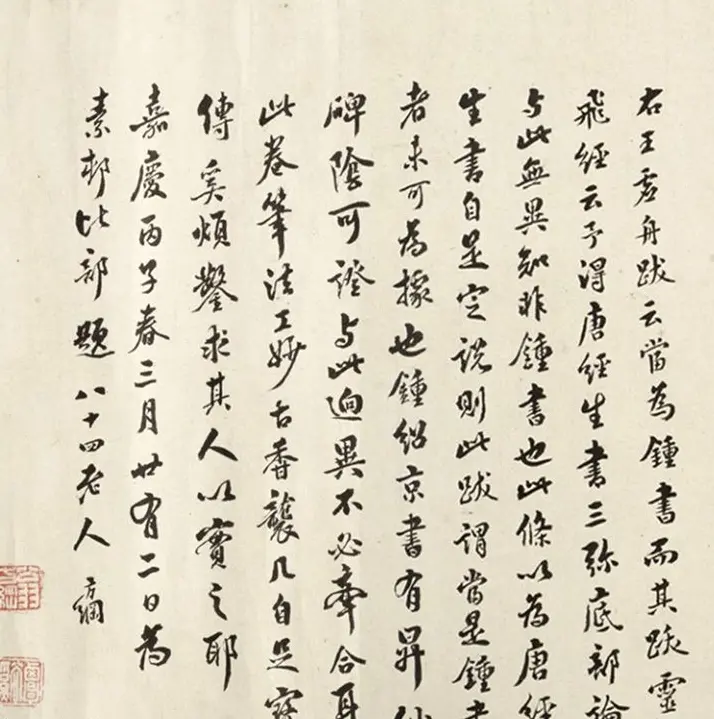 右王虛舟跋云當為鍾書而其跋靈
飛經云予得唐經生書三弥底部論
与此無異知非鍾書也此條以為唐經
生書自是定說則此跋謂當是鍾書
者未可為據也鍾紹京書有昇仙
碑陰可證与此迥異不必牽合耳
此卷筆法工妙古香襲几自足寶
傳奚煩鑿求其人以實之耶
嘉慶丙子春三月廿有二日為
素邨比部題八十四老人方綱